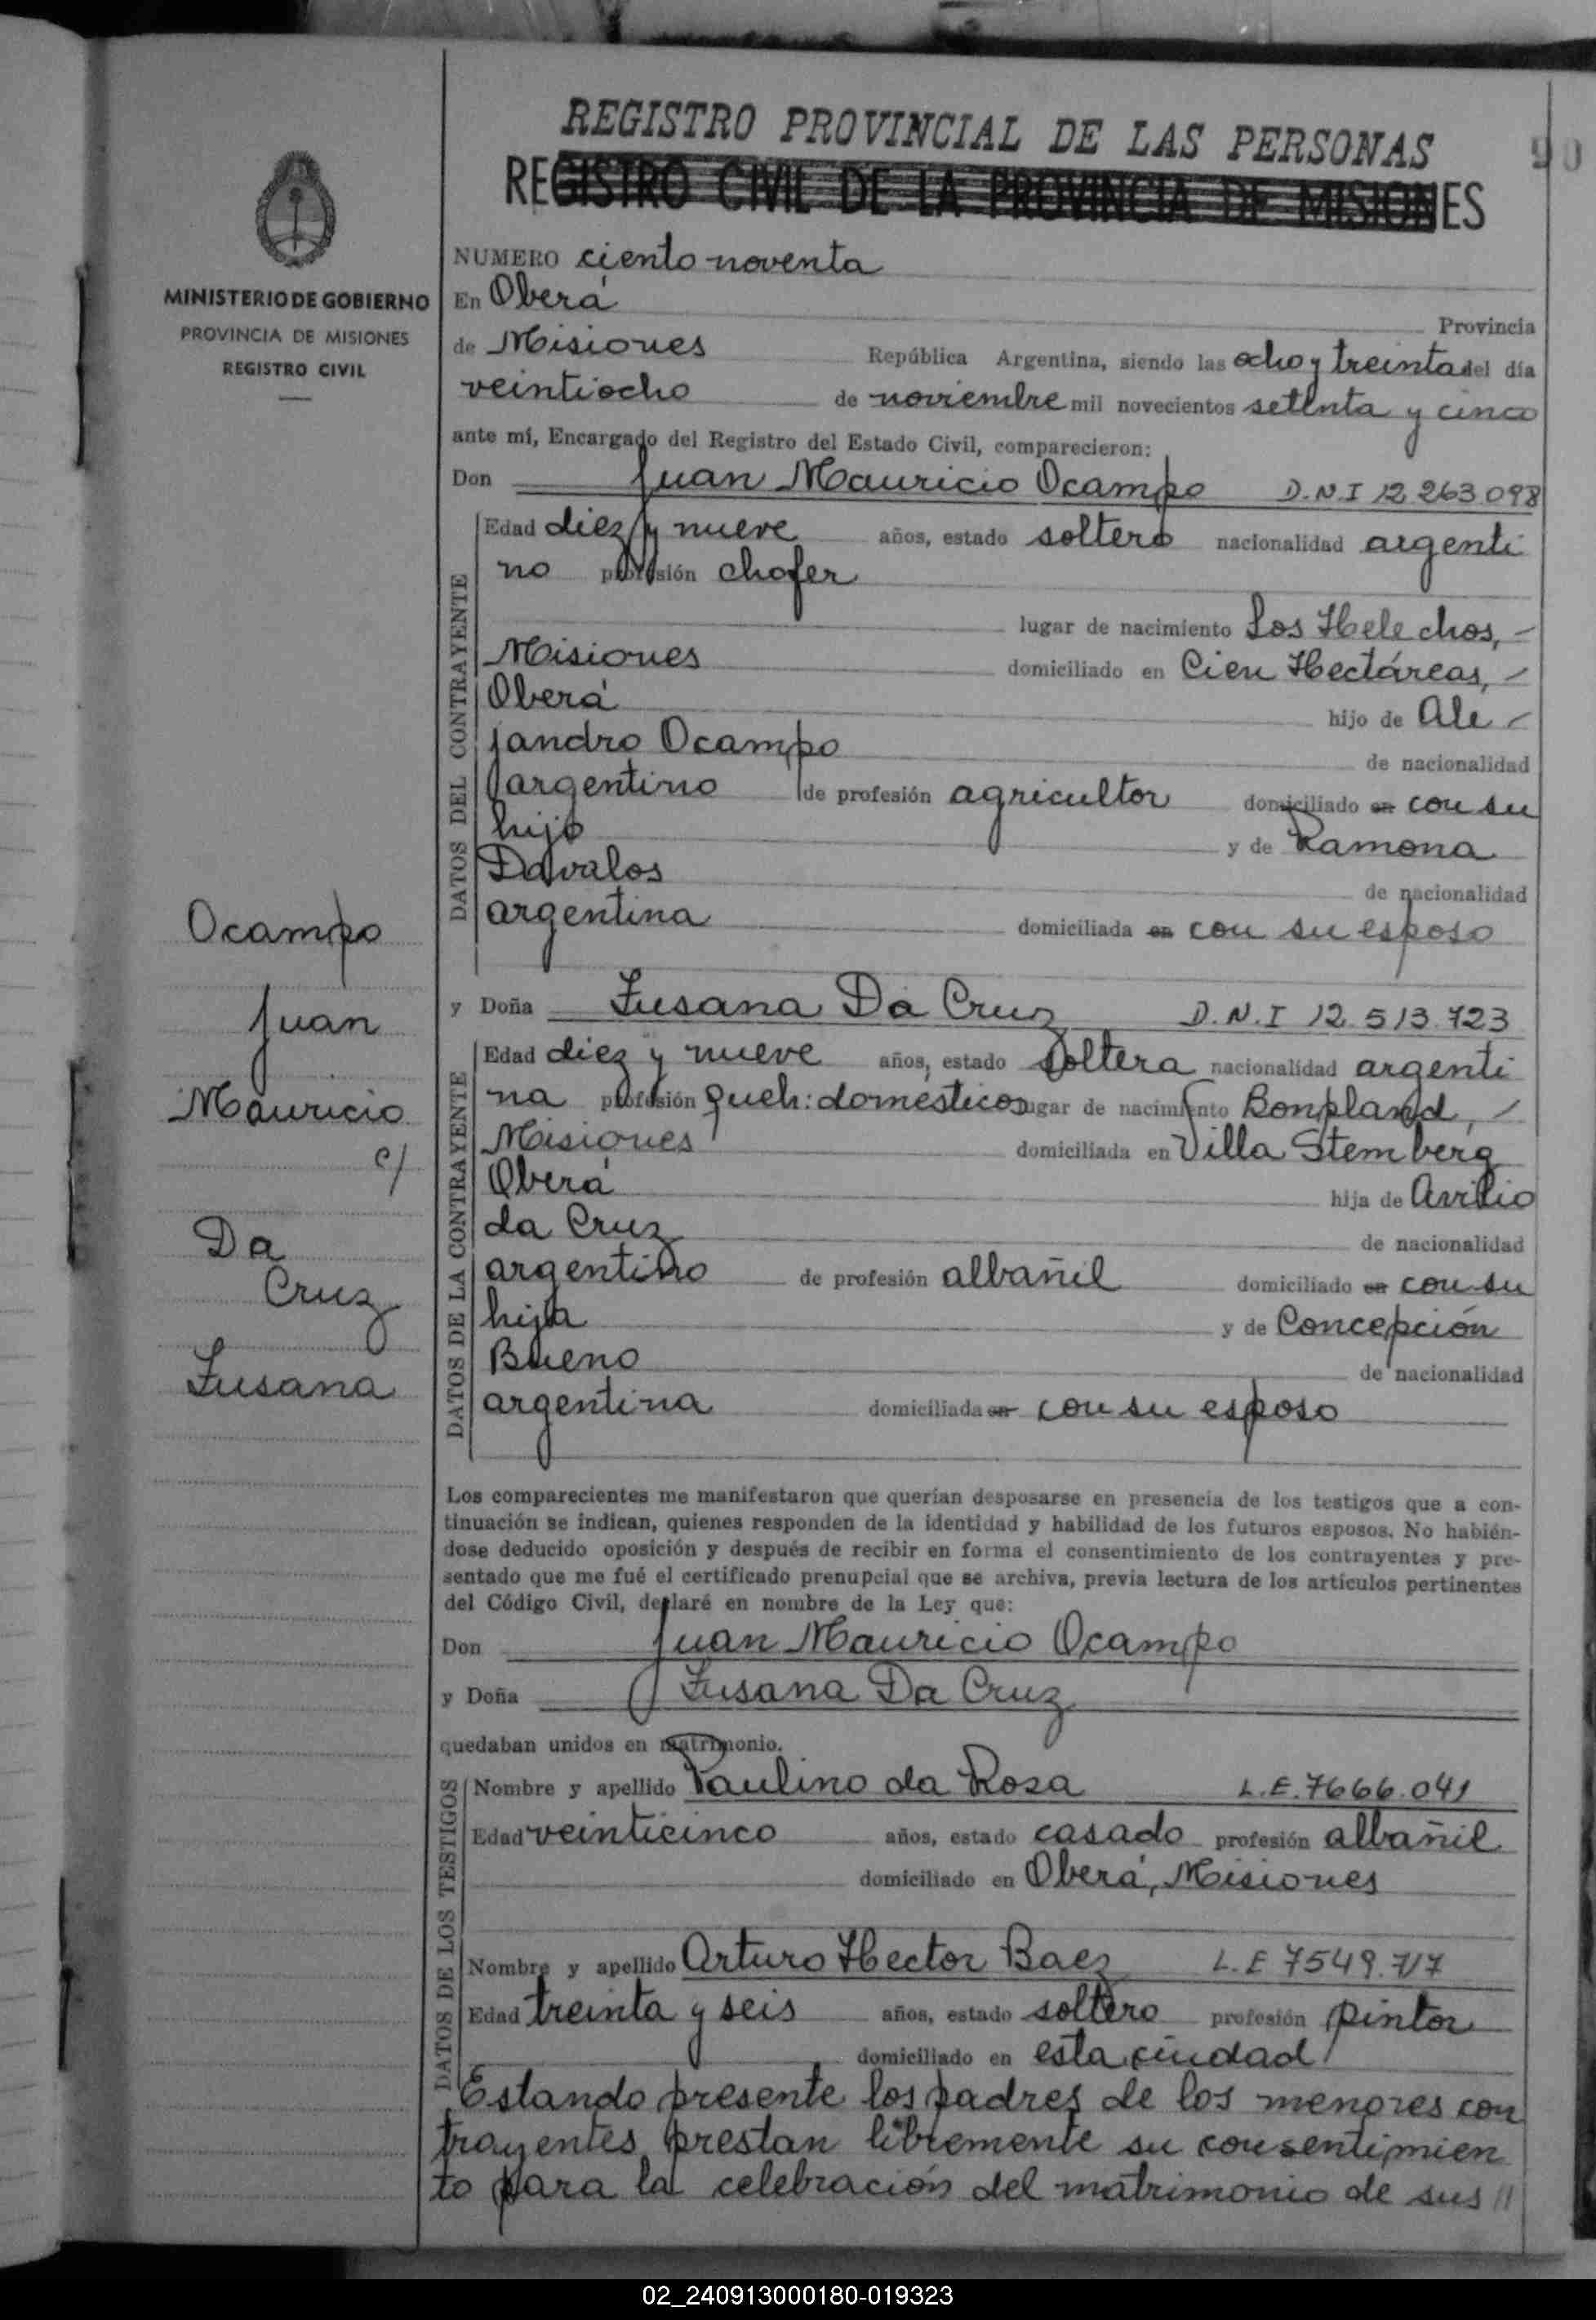 REGISTRO PROVINCIAL DE LAS PERSONAS
90
REGISTRO CIVIL DE LA PROVINCIA DE MISIONES
MINISTERIO DE GOBIERNO
PROVINCIA DE MISIONES
REGISTRO CIVIL
NUMERO ciento noventa
En Oberá Provincia
de Misiones República Argentina, siendo las ocho y treinta del día
veintiocho de noviembre mil novecientos setenta y cinco
ante mí, Encargado del Registro del Estado Civil, comparecieron:
Don Juan Mauricio Ocampo D.N.I 12.263.098
DATOS DEL CONTRAYENTE
Edad diez y nueve años, estado soltero nacionalidad argenti
no profesión chofer
lugar de nacimiento Los Helechos, -
Misiones domiciliado en Cien Hectáreas, -
Oberá hijo de Ale -
jandro Ocampo de nacionalidad
argentino de profesión agricultor domiciliado en con su
hijo y de Ramona
Davalos de nacionalidad
argentina domiciliada en con su esposo
Ocampo
Juan
Mauricio
c/
Da
Cruz
Susana
y Doña Susana Da Cruz D.N.I 12.513.723
DATOS DE LA CONTRAYENTE
Edad diez y nueve años, estado soltera nacionalidad argenti
na profesión queh: domésticos lugar de nacimiento Bonpland, -
Misiones domiciliada en Villa Stemberg
Oberá hija de Avilio
da Cruz de nacionalidad
argentino de profesión albañil domiciliado en con su
hija y de Concepción
Bueno de nacionalidad
argentina domiciliada en con su esposo
Los comparecientes me manifestaron que querían desposarse en presencia de los testigos que a con-
tinuación se indican, quienes responden de la identidad y habilidad de los futuros esposos. No habién-
dose deducido oposición y después de recibir en forma el consentimiento de los contrayentes y pre-
sentado que me fué el certificado prenupcial que se archiva, previa lectura de los artículos pertinentes
del Código Civil, declaré en nombre de la Ley que:
Don Juan Mauricio Ocampo
y Doña Susana Da Cruz
quedaban unidos en matrimonio.
DATOS DE LOS TESTIGOS
Nombre y apellido Paulino da Rosa L.E. 7666.041
Edad veinticinco años, estado casado profesión albañil
domiciliado en Oberá, Misiones
Nombre y apellido Arturo Hector Baez L.E 7549.717
Edad treinta y seis años, estado soltero profesión pintor
domiciliado en esta ciudad
Estando presente los padres de los menores con
trayentes prestan libremente su consentimien
to para la celebración del matrimonio de sus //
02_240913000180-019323